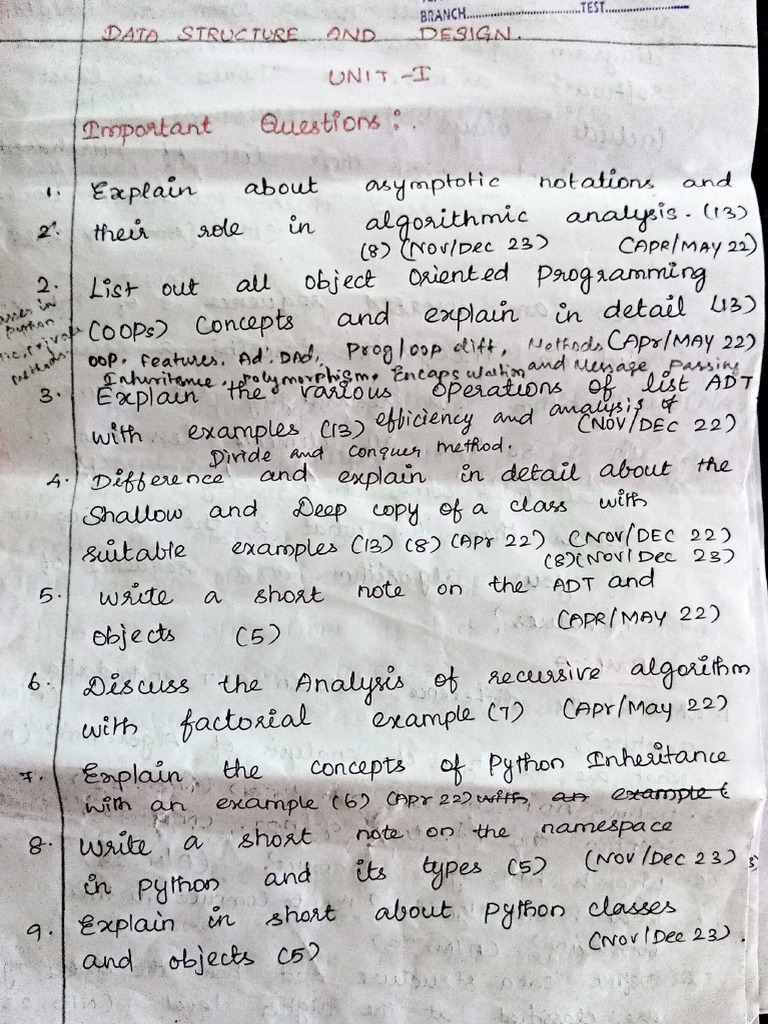 BRANCH..............................TEST....................
DATA STRUCTURE AND DESIGN.
UNIT-I
Important Questions:.
1. Explain about asymptotic notations and
2. their role in algorithmic analysis. (13)
(8) (Nov/Dec 23) (APR/MAY 22)
2. List out all object oriented programming
(OOPs) concepts and explain in detail (13)
OOP. Features. Prog/oop diff, Methods (APr/MAY 22)
Inheritance. polymorphism. and Message passing
3. Explain the various operations of list ADT
with examples (13) efficiency and analysis of (NOV/DEC 22)
Divide and Conquer method.
4. Difference and explain in detail about the
Shallow and Deep copy of a class with
suitable examples (13) (8) (APr 22) (Nov/DEC 22)
(8)(Nov/Dec 23)
5. write a short note on the ADT and
objects (5) (APR/MAY 22)
6. Discuss the Analysis of recursive algorithm
with factorial example (7) (APr/May 22)
7. Explain the concepts of Python Inheritance
with an example (6) (APr 22) with an example (
8. write a short note on the namespace
in python and its types (5) (Nov/Dec 23)
9. Explain in short about python classes
and objects (5) (Nov/Dec 23).